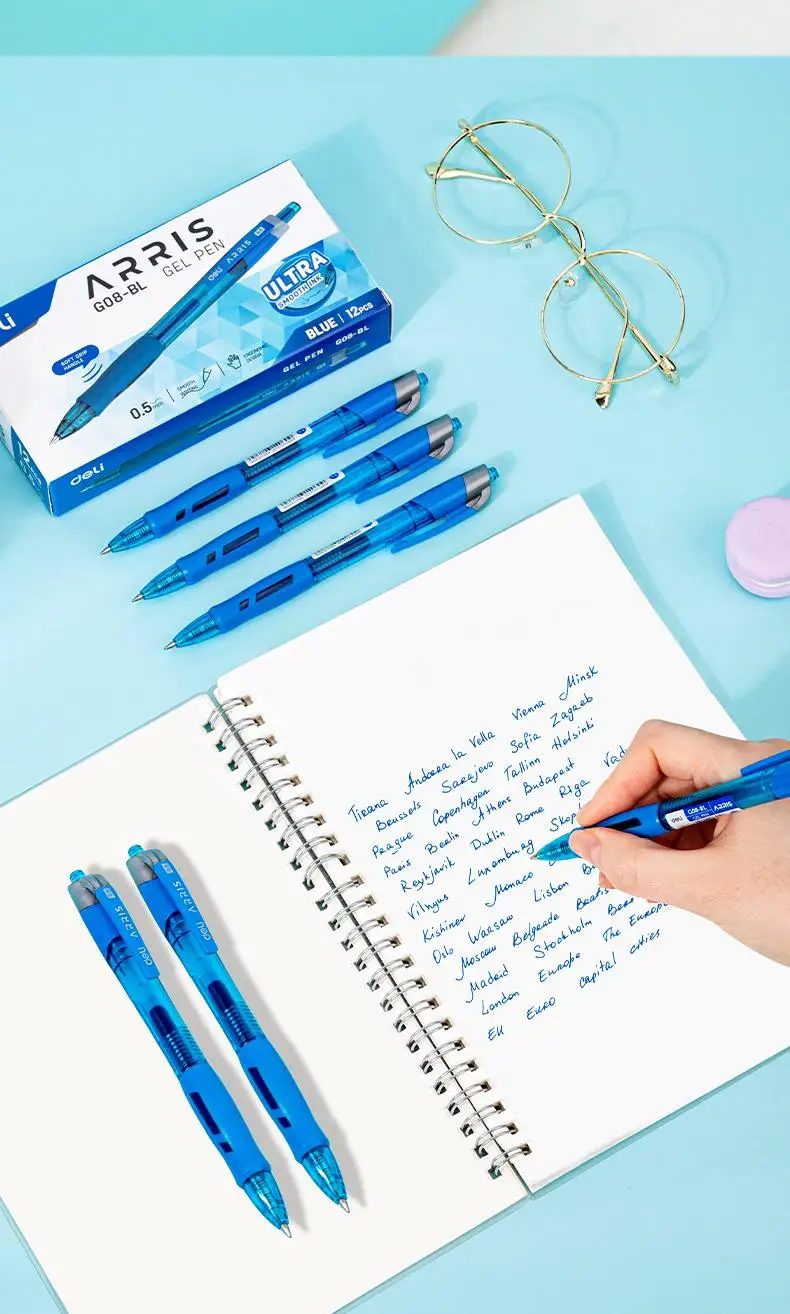 ARRIS
G08-BL GEL PEN
deli ARRIS
ULTRA
SMOOTH INK
SOFT GRIP
HANDLE
0.5mm
SMOOTH
WRITING
ERGONOMIC
DESIGN
BLUE | 12PCS
GEL PEN G08-BL
deli
Tirana Andorra la Vella Vienna Minsk
Brussels Sarajevo Sofia Zagreb
Prague Copenhagen Tallinn Helsinki
Paris Berlin Athens Budapest
Reykjavik Dublin Rome Riga Vad
Vilnyus Luxemburg Skop
Kishinev Monaco
Oslo Warsaw Lisbon
Moscow Belgrade
Madrid Stockholm Bern
London Europe The Europe
EU Euro capital cities
G08-BL
deli ARRIS
deli ARRIS